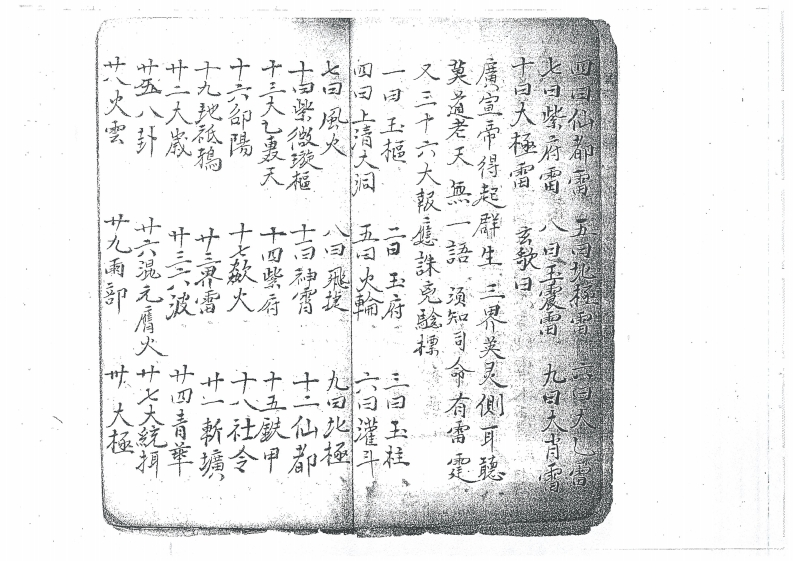 四曰仙都雷 五曰北極雷 六曰大乙雷
七曰紫府雷 八曰玉震雷 九曰大肖雷
十曰大極雷 玄歌曰
廣宣帝得起群生 三界英灵側耳聽
莫道老天無一語 須知司命有雷霆
又三十六大報應誅克驗標
一曰玉樞 二曰玉府 三曰玉柱
四曰上清大洞 五曰火輪 六曰灌斗
七曰風火 八曰飛捷 九曰北極
十曰紫微璇樞 十一曰神霄 十二仙都
十三大乙轟天 十四紫府 十五鉄甲
十六邵陽 十七歘火 十八社令
十九地祇鴉 廿界雷 廿一斬壙
廿二大歲 廿三六波 廿四青華
廿五八卦 廿六混元鷹火 廿七大統攝
廿八火雲 廿九雨部 卅大極